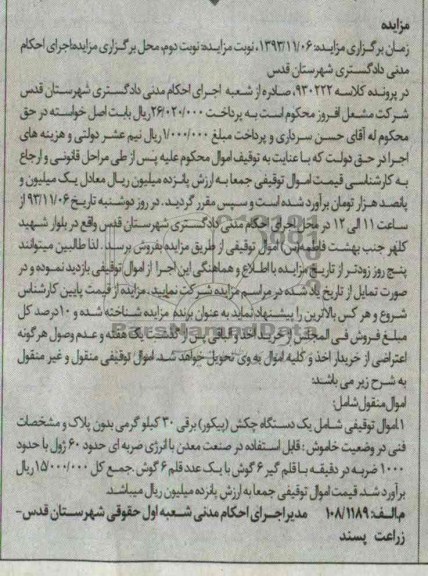 مزایده
زمان برگزاری مزایده: ۱۳۹۳/۱۱/۰۶، نوبت مزایده: نوبت دوم، محل برگزاری مزایده: اجرای احکام
مدنی دادگستری شهرستان قدس
در پرونده کلاسه ۹۳۰۲۲۲، صادره از شعبه اجرای احکام مدنی دادگستری شهرستان قدس
شرکت مشعل افروز محکوم است به پرداخت ۲۶/۰۲۰/۰۰۰ ریال بابت اصل خواسته در حق
محکوم له آقای حسن سرداری و پرداخت مبلغ ۱/۰۰۰/۰۰۰ ریال نیم عشر دولتی و هزینه های
اجرا در حق دولت که با عنایت به توقیف اموال محکوم علیه پس از طی مراحل قانونی و ارجاع
به کارشناسی قیمت اموال توقیفی جمعا به ارزش پانزده میلیون ریال معادل یک میلیون و
پانصد هزار تومان برآورده شده است و سپس مقرر گردید. در روز دوشنبه تاریخ ۹۳/۱۱/۰۶ از
ساعت ۱۱ الی ۱۲ در محل اجرای احکام مدنی دادگستری شهرستان قدس واقع در بلوار شهید
کلهر جنب بهشت فاطمه (س) اموال توقیفی از طریق مزایده بفروش برسد. لذا طالبین میتوانند
پنج روز زودتر از تاریخ مزایده با اطلاع و هماهنگی این اجرا از اموال توقیفی بازدید نموده و در
صورت تمایل از تاریخ یاد شده در مراسم مزایده شرکت نمایید. مزایده از قیمت پایین کارشناس
شروع و هر کس بالاترین را پیشنهاد نماید به عنوان برنده مزایده شناخته شده و ۱۰ درصد کل
مبلغ فروش فی المجلس از خریدار اخذ و الباقی پس از گذشت یک هفته و عدم وصول هرگونه
اعتراضی از خریدار اخذ و کلیه اموال به وی تحویل خواهد شد. اموال توقیفی منقول و غیر منقول
به شرح زیر می باشد:
اموال منقول شامل:
۱. اموال توقیفی شامل یک دستگاه چکش (پیکور) برقی ۳۰ کیلو گرمی بدون پلاک و مشخصات
فنی در وضعیت خاموش: قابل استفاده در صنعت معدن با انرژی ضربه ای حدود ۶۰ ژول با حدود
۱۰۰۰ ضربه در دقیقه با قلم گیر ۶ گوش با یک عدد قلم ۶ گوش. جمع کل ۱۵/۰۰۰/۰۰۰ ریال
برآورد شد. قیمت اموال توقیفی جمعا به ارزش پانزده میلیون ریال میباشد.
م.الف: ۱۰۸/۱۱۸۹ مدیر اجرای احکام مدنی شعبه اول حقوقی شهرستان قدس-
زراعت پسند
ParsNamadData